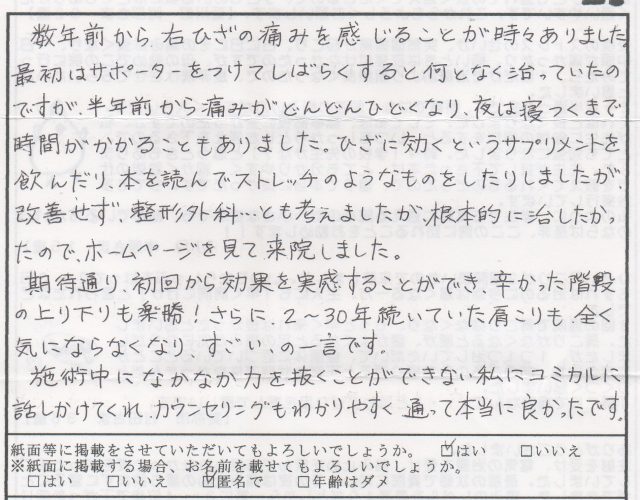 数年前から右ひざの痛みを感じることが時々ありました。
最初はサポーターをつけてしばらくすると何となく治っていたの
ですが、半年前から痛みがどんどんひどくなり、夜は寝つくまで
時間がかかることもありました。ひざに効くというサプリメントを
飲んだり、本を読んでストレッチのようなものをしたりしましたが、
改善せず、整形外科…とも考えましたが、根本的に治したかっ
たので、ホームページを見て来院しました。
期待通り、初回から効果を実感することができ、辛かった階段
の上り下りも楽勝！さらに、2～30年続いていた肩こりも、全く
気にならなくなり、すごい、の一言です。
施術中になかなか力を抜くことができない私にコミカルに
話しかけてくれ、カウンセリングもわかりやすく通って本当に良かったです。
紙面等に掲載をさせていただいてもよろしいでしょうか。 ☑はい □いいえ
※紙面に掲載する場合、お名前を載せてもよろしいでしょうか。
□はい □いいえ ☑匿名で □年齢はダメ